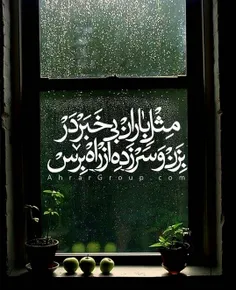 مثل باران بی خبر در
بزن و سر زده از راه برس
AhrarGroup.com